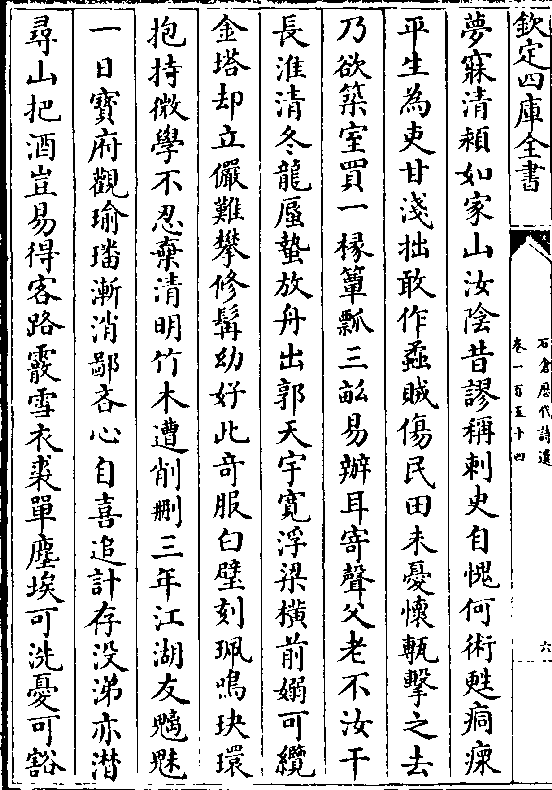 欽定四庫全書
石倉歷代詩選
卷一百五十四
六
夢寐清潁如家山汝陰昔謬稱刺史自愧何術甦痌瘝
平生為吏甘淺拙敢作蟊賊傷民田未憂懷甎擊之去
乃欲築室買一椽簞瓢三畝易辦耳寄聲父老不汝干
長淮清冬龍蜃蟄放舟出郭天宇寛浮梁横前嫋可纜
金塔却立儼難攀修髯幼好此竒服白璧刻珮鳴玦環
抱持微學不忍棄清明竹木遭削刪三年江湖友魑魅
一日寶府觀瑜璠漸消鄙吝心自喜追計存没涕亦潸
尋山把酒豈易得客路霰雪衣裘單塵埃可洗憂可豁